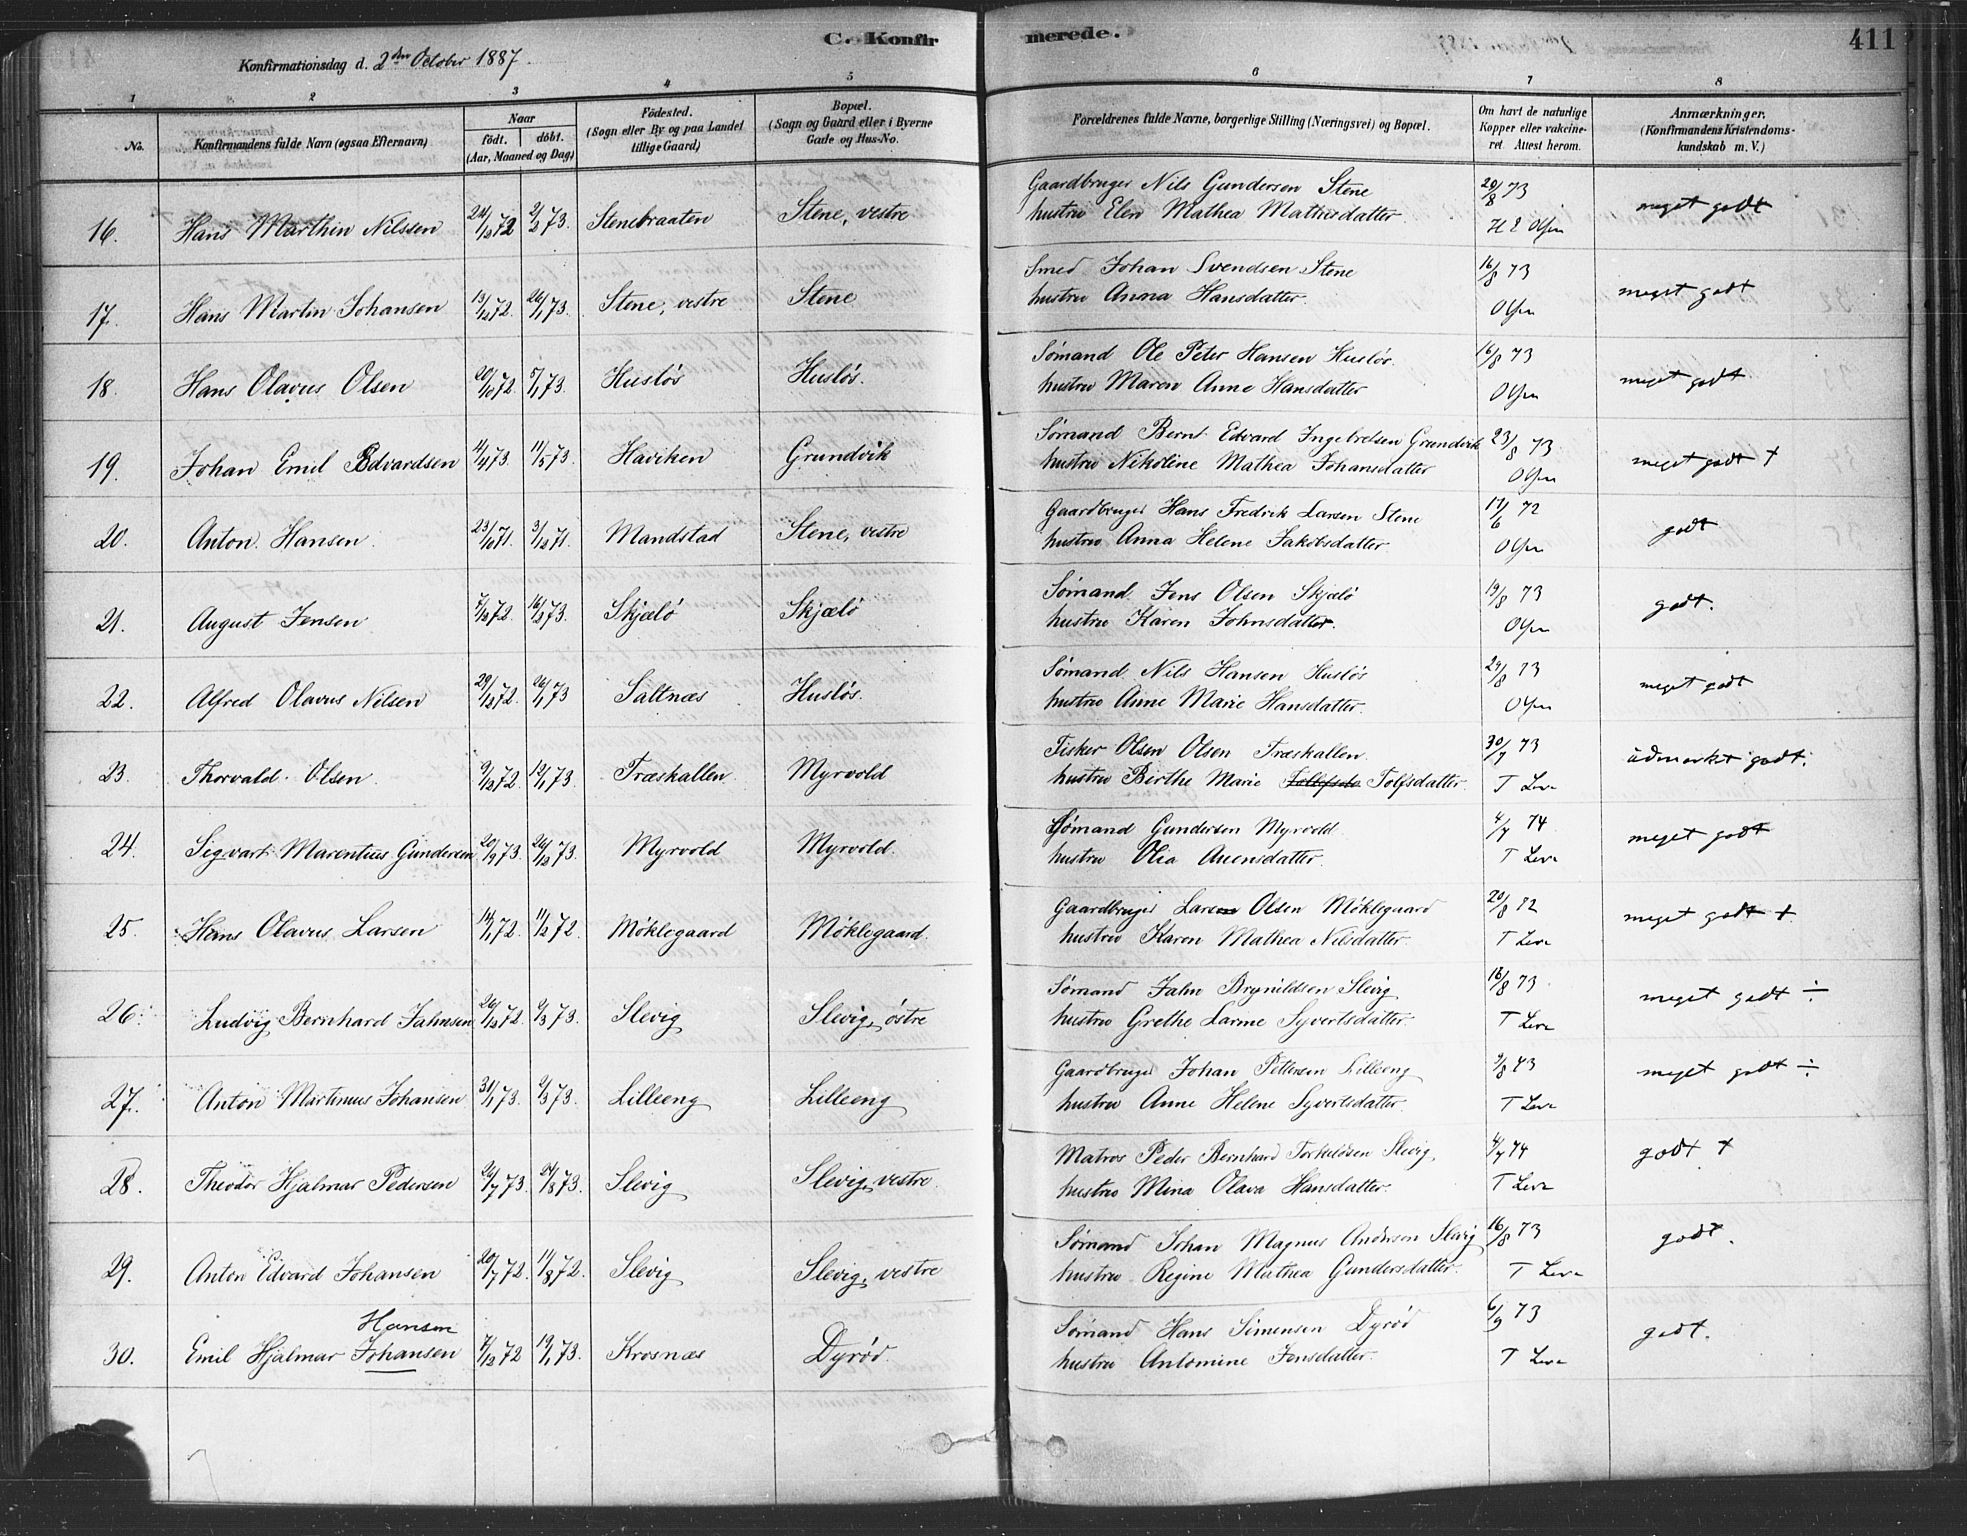 C. Konfirmerede.
411
Konfirmationsdag d. 2den October 1887.
1 2 3 4 5 6 7 8
No.
Konfirmandens fulde Navn (ogsaa Efternavn)
Naar
født. døbt.
(Aar, Maaned og Dag)
Fødested.
(Sogn eller By og paa Landet
tillige Gaard)
Bopæl.
(Sogn og Gaard eller i Byerne
Gade og Hus-No.
Forældrenes fulde Navne, borgerlige Stilling (Næringsvei) og Bopæl.
Om havt de naturlige
Kopper eller vakcine-
ret. Attest herom.
Anmærkninger.
(Konfirmandens Kristendoms-
kundskab m. V.)
16. Hans Marthin Nilssen 24/12 72 2/2 73. Stenebraaten Stene, vestre Gaardbruger Nils Gundersen Stene 20/8 73 meget godt
hustru Elen Mathea Mathisdatter H E Olsen
17. Hans Martin Johansen 13/12 72. 26/1 73. Stene, vestre Stene Smed Johan Svendsen Stene 16/8 73 meget godt
hustru Anna Hansdatter. Olsen
18. Hans Olavus Olsen 20/10 72. 5/1 73. Husløs Husløs. Sømand Ole Peter Hansen Husløs. 16/8 73 meget godt
hustru Maren Anne Hansdatter Olsen
19. Johan Emil Edvardsen 11/4 73. 11/5 73. Haviken Grundvik Sømand Bernt Edvard Ingebretsen Grundvik 23/8 73. meget godt +
hustru Nikoline Mathea Johansdatter Olsen
20. Anton Hansen. 23/10 71. 3/12 71. Mandstad Stene, vestre Gaardbruger Hans Fredrik Larsen Stene 17/6 72 godt
hustru Anna Helene Jakobsdatter. Olsen
21. August Jensen 7/12 72. 16/2 73. Skjælø Skjælø Sømand Jens Olsen Skjælø 19/8 73 godt.
hustru Karen Johnsdatter. Olsen
22. Alfred Olavus Nilsen 29/12 72. 26/1 73 Saltnæs Husløs. Sømand Nils Hansen Husløs 29/8 73 meget godt
hustru Anne Marie Hansdatter. Olsen
23. Thorvald Olsen. 9/12 72. 12/1 73. Træskallen. Myrvold Fisker Olsen Olsen Træskallen. 30/7 73 udmærket godt.
hustru Birthe Marie Tolfsdatter. T Leve
24. Sigvart Marentius Gundersen 20/9 73. 26/12 73. Myrvold Myrvold. Sømand Gundersen Myrvold 4/7 74 meget godt
hustru Olia Auensdatter. T Leve
25. Hans Olavus Larsen 14/1 72. 11/2 72 Møklegaard Møklegaard. Gaardbruger Lars Olsen Møklegaard 20/8 72 meget godt +
hustru Karen Mathea Nilsdatter. T Leve
26. Ludvig Bernhard Jahnsen 26/12 72. 9/3 73. Slevig Slevig, østre Sømand Jahn Brynildsen Slevig 18/8 73. meget godt ÷
hustru Grethe Larine Syvertsdatter. T Leve
27. Anton Martinus Johansen 31/1 73. 2/3 73. Lilleeng Lilleeng Gaardbruger Johan Pettersen Lilleeng 9/8 73 meget godt ÷
hustru Anne Helene Syvertsdatter. T Leve
28. Theodor Hjalmar Pedersen 26/7 73. 24/8 73. Slevig Slevig, vestre. Matros Peder Bernhard Torkildsen Slevig, 4/7 74 godt +
hustru Mina Olava Hansdatter. T Leve
29. Anton Edvard Johansen 20/7 72. 11/8 72. Slevig Slevig, vestre Sømand Johan Magnus Andersen Slevig 16/8 73 godt.
hustru Regine Mathea Gundersdatter. T Leve
Hansen
30. Emil Hjalmar Johansen 7/12 72 19/1 73. Krosnæs Dyrød. Sømand Hans Simensen Dyrød 6/9 73 godt.
hustru Antomine Jensdatter. T Leve